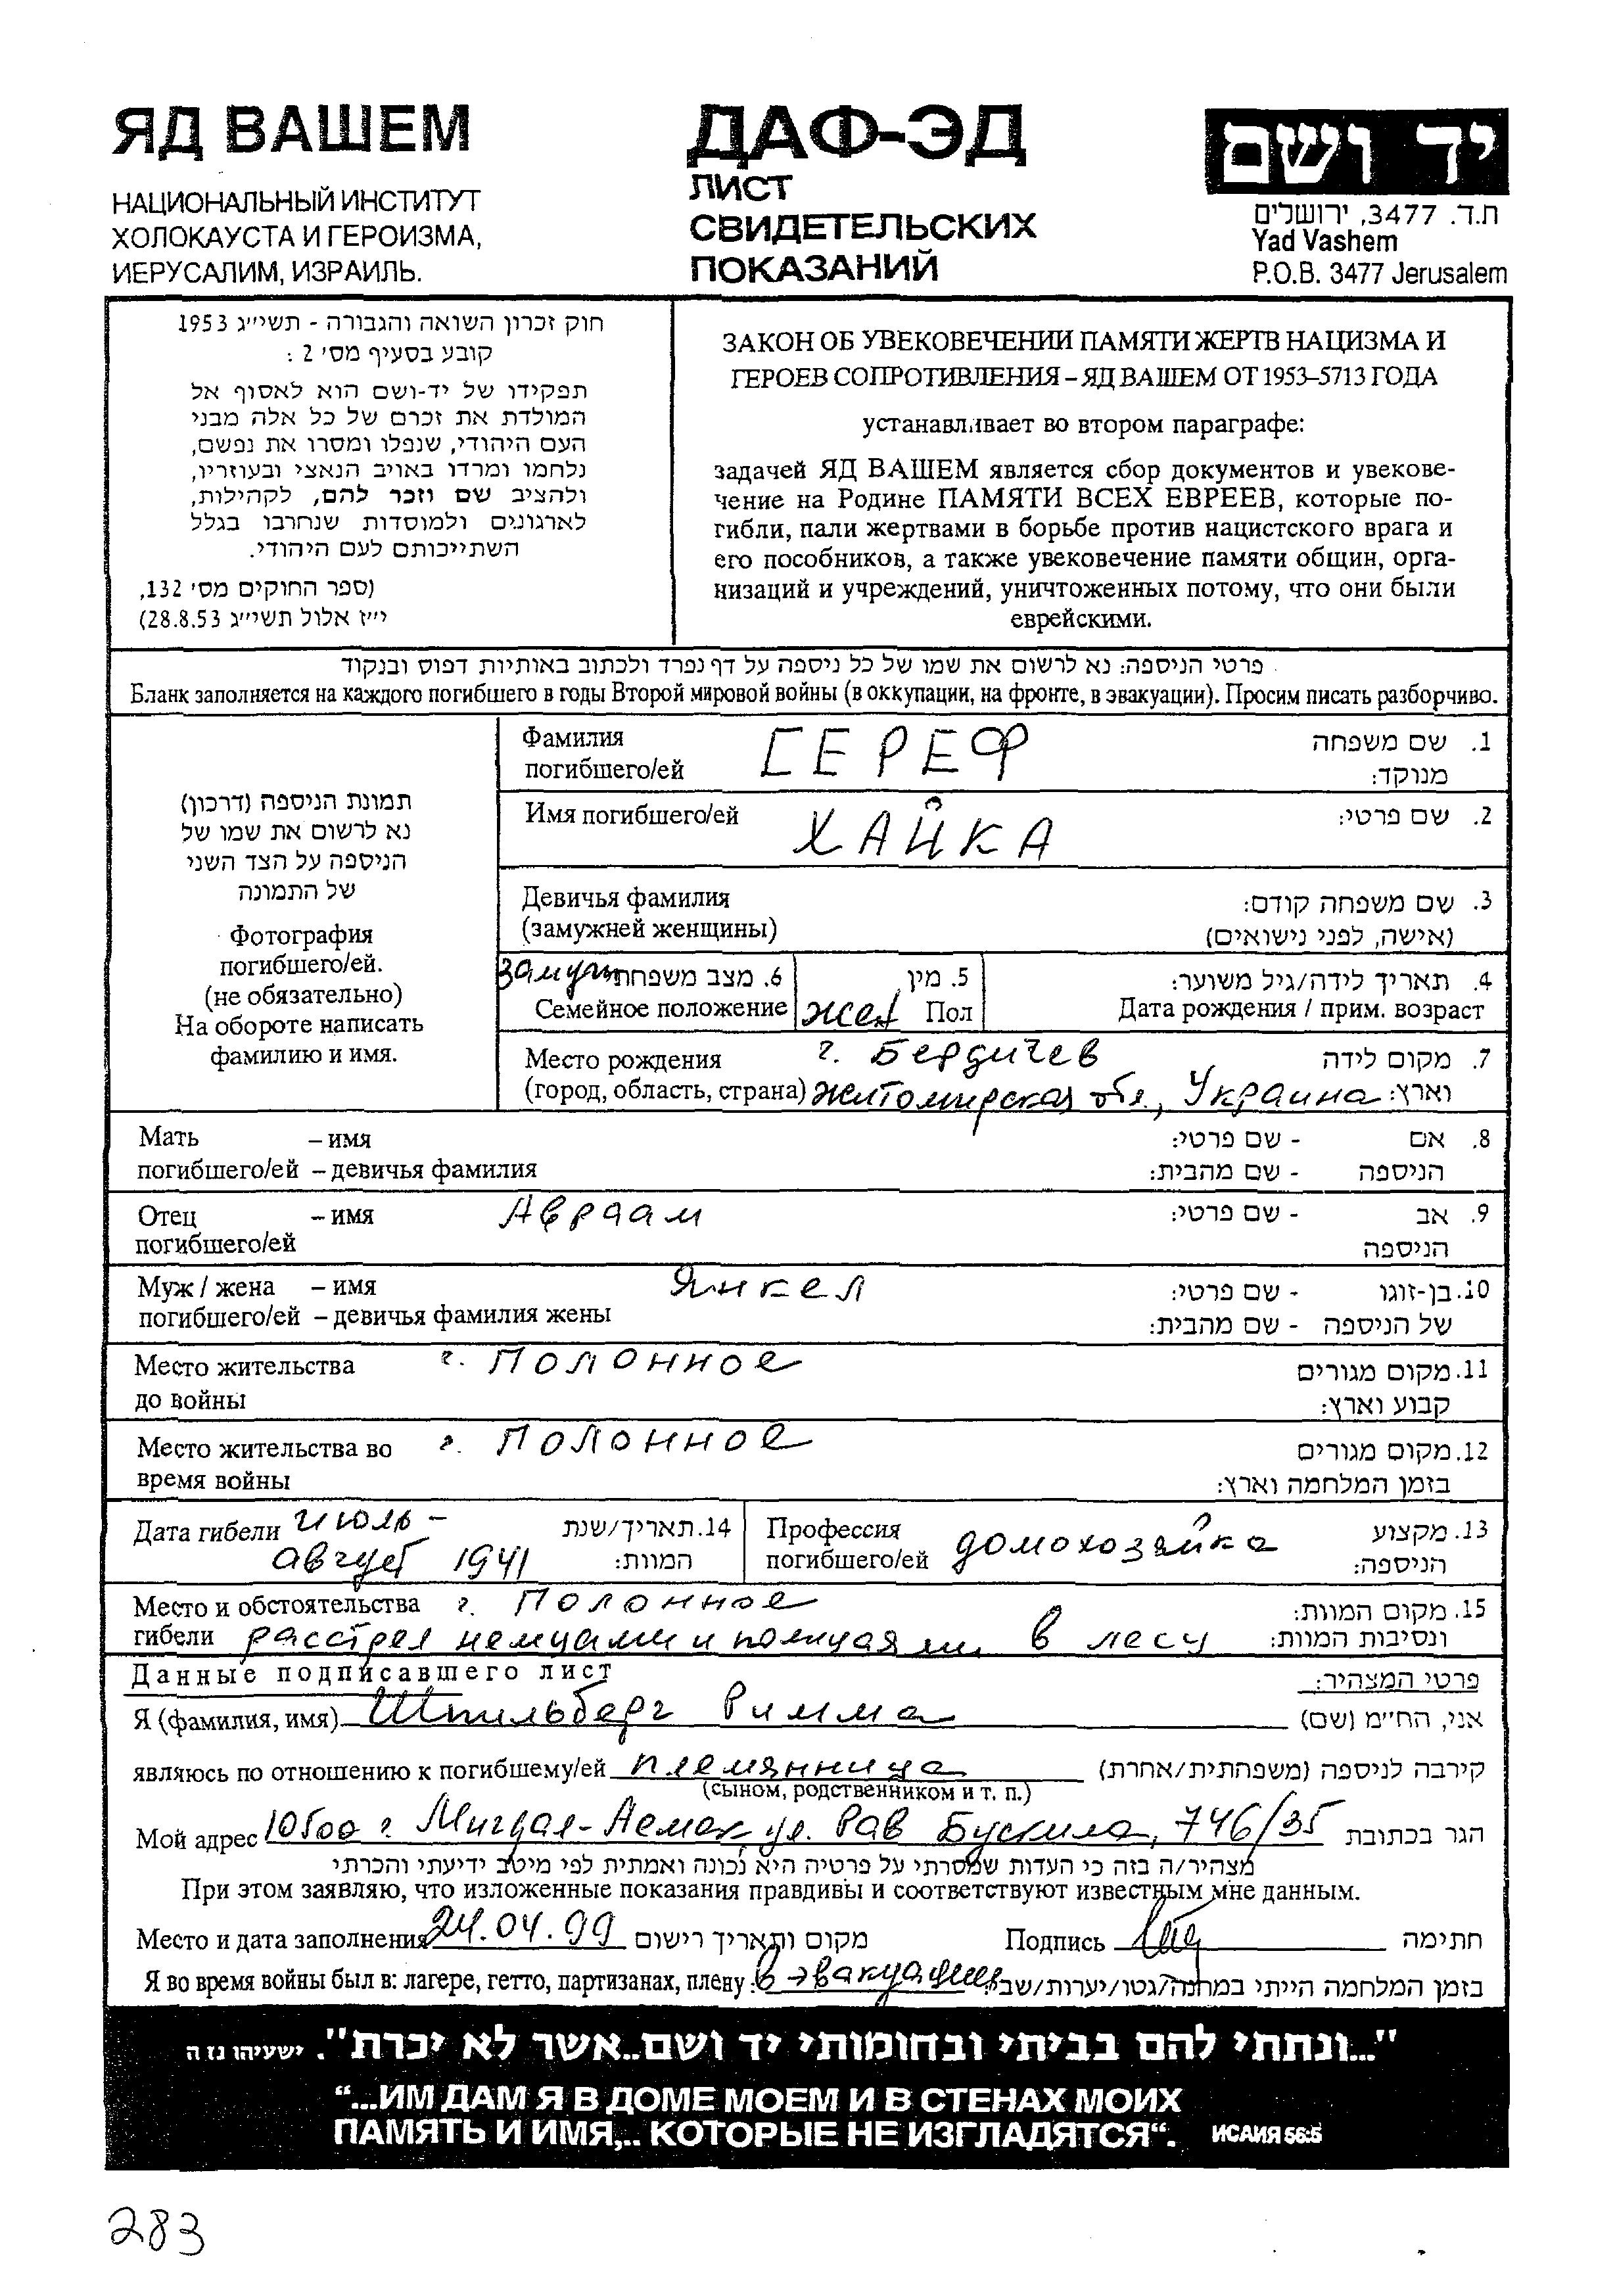 ЯД ВАШЕМ
НАЦИОНАЛЬНЫЙ ИНСТИТУТ
ХОЛОКАУСТА И ГЕРОИЗМА,
ИЕРУСАЛИМ, ИЗРАИЛЬ.
ДАФ-ЭД
ЛИСТ
СВИДЕТЕЛЬСКИХ
ПОКАЗАНИЙ
יד ושם
ת.ד. 3477, ירושלים
Yad Vashem
P.O.B. 3477 Jerusalem
חוק זכרון השואה והגבורה - תשי״ג 1953
קובע בסעיף מס׳ 2 :
תפקידו של יד-ושם הוא לאסוף אל
המולדת את זכרם של כל אלה מבני
העם היהודי, שנפלו ומסרו את נפשם,
נלחמו ומרדו באויב הנאצי ובעוזריו,
ולהציב שם וזכר להם, לקהילות,
לארגונים ולמוסדות שנחרבו בגלל
השתייכותם לעם היהודי.
(ספר החוקים מס׳ 132,
י״ז אלול תשי״ג 28.8.53)
ЗАКОН ОБ УВЕКОВЕЧЕНИИ ПАМЯТИ ЖЕРТВ НАЦИЗМА И
ГЕРОЕВ СОПРОТИВЛЕНИЯ – ЯД ВАШЕМ ОТ 1953–5713 ГОДА
устанавливает во втором параграфе:
задачей ЯД ВАШЕМ является сбор документов и увекове-
чение на Родине ПАМЯТИ ВСЕХ ЕВРЕЕВ, которые по-
гибли, пали жертвами в борьбе против нацистского врага и
его пособников, а также увековечение памяти общин, орга-
низаций и учреждений, уничтоженных потому, что они были
еврейскими.
פרטי הניספה: נא לרשום את שמו של כל ניספה על דף נפרד ולכתוב באותיות דפוס ובנקוד
Бланк заполняется на каждого погибшего в годы Второй мировой войны (в оккупации, на фронте, в эвакуации). Просим писать разборчиво.
תמונת הניספה (דרכון)
נא לרשום את שמו של
הניספה על הצד השני
של התמונה
Фотография
погибшего/ей.
(не обязательно)
На обороте написать
фамилию и имя.
Фамилия ГЕРЕФ 1. שם משפחה
погибшего/ей מנוקד:
Имя погибшего/ей ХАЙКА 2. שם פרטי:
Девичья фамилия 3. שם משפחה קודם:
(замужней женщины) (אישה, לפני נישואים)
замуж 6. מצב משפחתי 5. מין 4. תאריך לידה/גיל משוער:
Семейное положение жен Пол Дата рождения / прим. возраст
Место рождения г. Бердичев 7. מקום לידה
(город, область, страна) Житомирская обл., Украина וארץ:
Мать – имя 8. אם - שם פרטי:
погибшего/ей – девичья фамилия הניספה - שם מהבית:
Отец – имя Авраам 9. אב - שם פרטי:
погибшего/ей הניספה
Муж / жена – имя Янкел 10. בן-זוגו - שם פרטי:
погибшего/ей – девичья фамилия жены של הניספה - שם מהבית:
Место жительства г. Полонное 11. מקום מגורים
до войны קבוע וארץ:
Место жительства во г. Полонное 12. מקום מגורים
время войны בזמן המלחמה וארץ:
Дата гибели июль – 14. תאריך/שנת
август 1941 המוות:
Профессия домохозяйка 13. מקצוע
погибшего/ей הניספה:
Место и обстоятельства г. Полонное 15. מקום המוות:
гибели расстрел немцами и полицаями в лесу ונסיבות המוות:
Данные подписавшего лист פרטי המצהיר:
Я (фамилия, имя) Штильберг Римма אני, הח״מ (שם)
являюсь по отношению к погибшему/ей племянница קירבה לניספה (משפחתית/אחרת)
(сыном, родственником и т. п.)
Мой адрес 10500 г. Мигдал-Аемек ул. Рав Бускила, 746/35 הגר בכתובת
מצהיר/ה בזה כי העדות שמסרתי על פרטיה היא נכונה ואמתית לפי מיטב ידיעתי והכרתי
При этом заявляю, что изложенные показания правдивы и соответствуют известным мне данным.
Место и дата заполнения 24.04.99 מקום ותאריך רישום Подпись חתימה
Я во время войны был в: лагере, гетто, партизанах, плену: в эвакуации בזמן המלחמה הייתי במחנה/גטו/יערות/שבי:
"...ונתתי להם בביתי ובחומותי יד ושם..אשר לא יכרת". ישעיהו נז ה
“...ИМ ДАМ Я В ДОМЕ МОЕМ И В СТЕНАХ МОИХ
ПАМЯТЬ И ИМЯ,.. КОТОРЫЕ НЕ ИЗГЛАДЯТСЯ“. ИСАИЯ 56:5
283